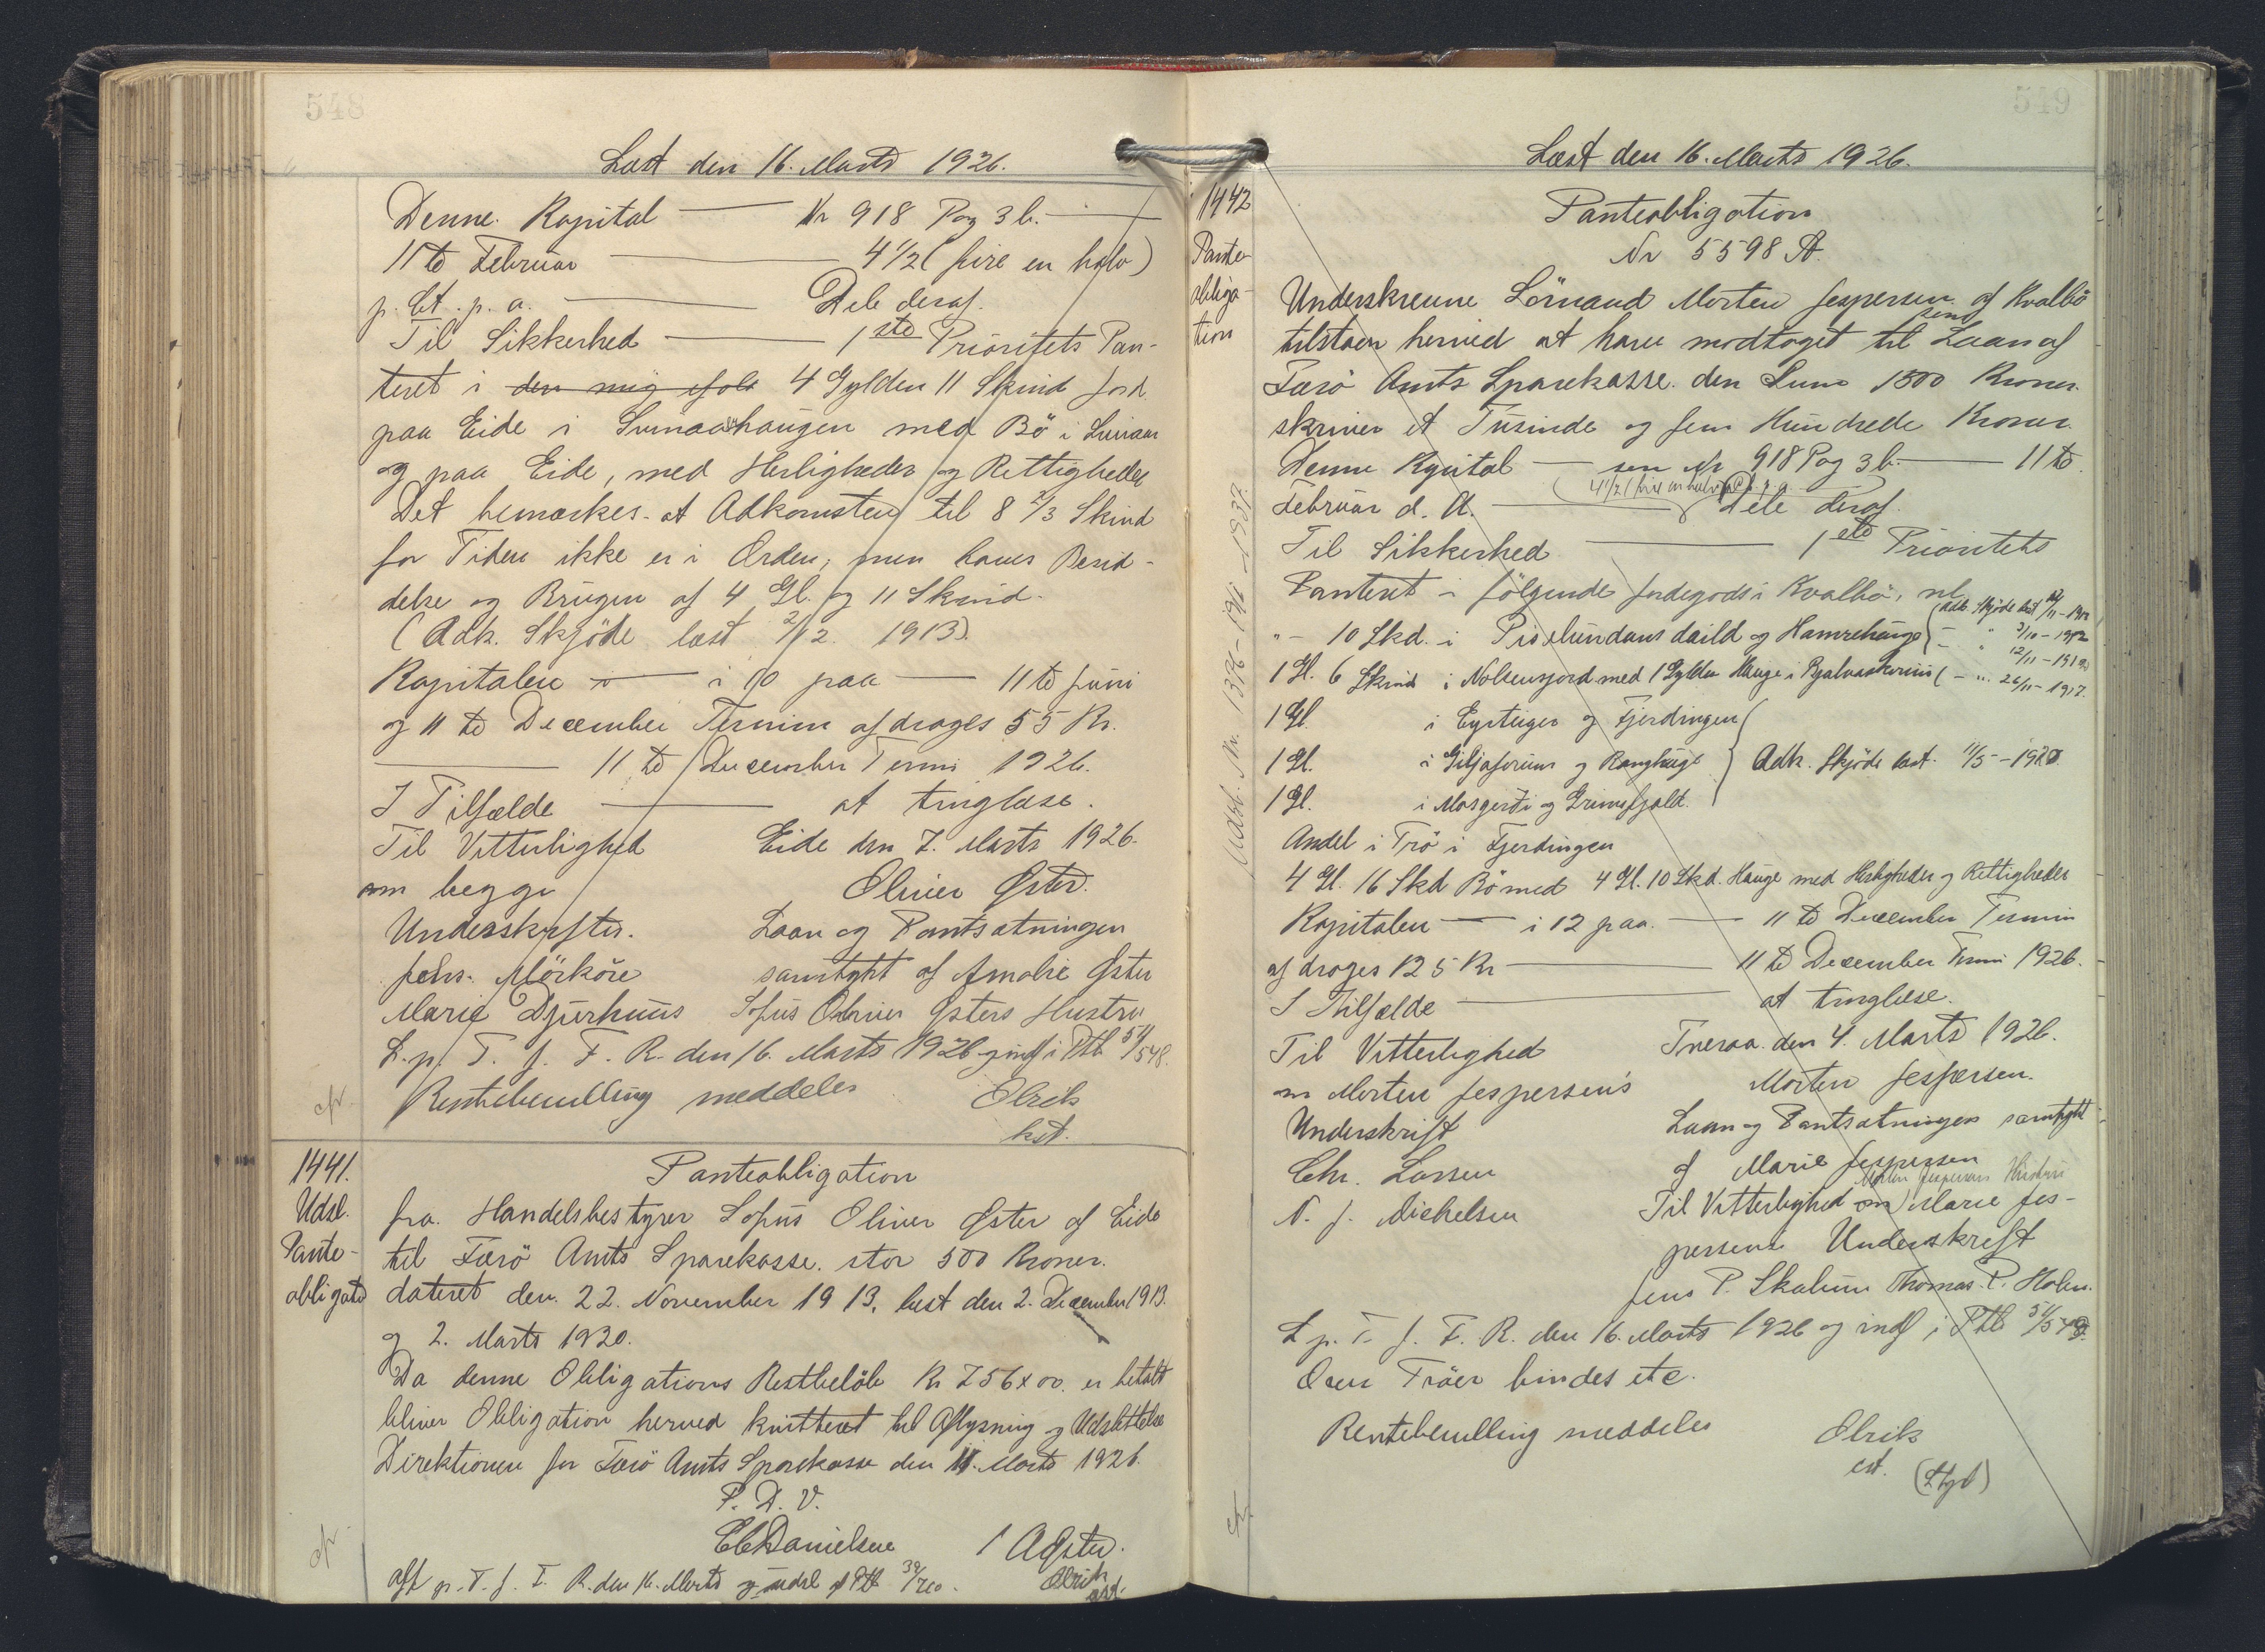 548
Læst den 16. Marts 1926.
Denne Kapital — Nr 918 Pag 3 b. —
11te Februar — 4 1/2 (fire en halv)
p. Ct. p. a. — Dele deraf.
Til Sikkerhed — 1ste Prioritets Pan-
teret i den mig 4 Gylden 11 Skind Jord
paa Eide i med Bö i
og paa Eide, med Herligheder og Rettigheder
Det bemærkes at Adkomsten til 8 2/3 Skind
for Tiden ikke er i Orden, men haves Besid-
delse og Brugen af 4 Gl. og 11 Skind.
(Adk. Skjöde læst 2/12 1913).
Kapitalen — i 10 paa — 11te Juni
og 11te December Termin afdrages 55 Kr.
— 11te December Termi 1926.
I Tilfælde — at tinglæse.
Til Vitterlighed Eide den 7. Marts 1926.
om begge Oliver Øster.
Underskrifter. Laan og Pantsætningen
Johs. Mörköre samtykt af Amalie Øster
Marie Djurhuus Sofus Oliver Østers Hustru
L. p. T. f. F. R. den 16. Marts 1926 og indf i Ptb 54/548.
Rentebevilling meddeles Olrik
kst.
cfr.
1441.
Udsl.
Pante-
obligatio
Panteobligation
fra Handelsbestyrer Sofus Oliver Øster af Eide
til Færö Amts Sparekasse stor 500 Kroner.
dateret den 22. November 1913, læst den 2. December 1913.
og 2. Marts 1920.
Da denne Obligations Restbelöb Kr 256 x 00. er betalt
bliver Obligation herved kvitteret til Aflysning og Udslettelse
Direktionen for Færö Amts Sparekasse den 11. Marts 1926.
P. D. V.
Danielsen / A Øster.
Afl p. T. f. F. R. den 16. Marts og udsl af Ptb 39/210. Olrik
cst.
cfr
549
Læst den 16. Marts 1926.
1442
Pante-
obliga-
tion
Panteobligation
Nr 5598 A.
Underskrevne Sömand Morten Jespersen af Kvalbö
tilstaar herved at have modtaget til Laan af
som
Færö Amts Sparekasse den Sum 1500 Kroner.
skriver et Tusinde og fem Hundrede Kroner.
Denne Kapital — sen Nr 918 Pag 3 b. — 11te
(4 1/2 (fire en halv) p. Ct. p. a.
Februar d. A. — Dele deraf.
Til Sikkerhed — 1ste Prioritets
Panteret i følgende Jordegods i Kvalbö, nl.
10 Skd. i daild og Hamrehauge
1 Gl. 6 Skind i med 1 Gylden Hauge i
Adk. Skjöde læst
26/11-1917.
1 Gl. i og Fjerdingen
1 Gl. i og
1 Gl. i og
Adk. Skjöde læst. 11/5-1920
Andel i Trö i Fjerdingen
4 Gl. 16 Skd Bö med 4 Gl. 10 Skd. Hauge med Herligheder og Rettigheder
Kapitalen — i 12 paa — 11te December Termin
afdrages 125 Kr — 11te December Termi 1926.
I Tilfælde — at tinglæse.
Til Vitterlighed Tveraa den 4. Marts 1926.
om Morten Jespersen's Morten Jespersen.
Underskrift Laan og Pantsætningen samtykt
Chr. Larsen af Marie Jespersen
Morten Jespersens Hustru
N. J. Michelsen Til Vitterlighed om Marie Jes-
persens Underskrift
Jens P. Skaalum Thomas P. Holm.
L p. T. f. F. R. den 16. Marts 1926 og indf i Ptb 54/549.
Oven Tröer bindes etc.
Rentebevilling meddeles Olrik
cst.
Udsl. Nr. 1937.
cfr